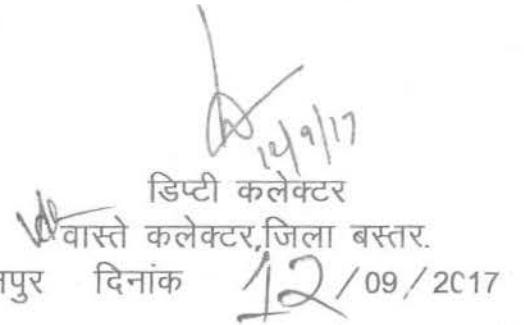 डिप्टी कलेक्टर
वास्ते कलेक्टर,जिला बस्तर.
नपुर दिनांक 12/09/2017